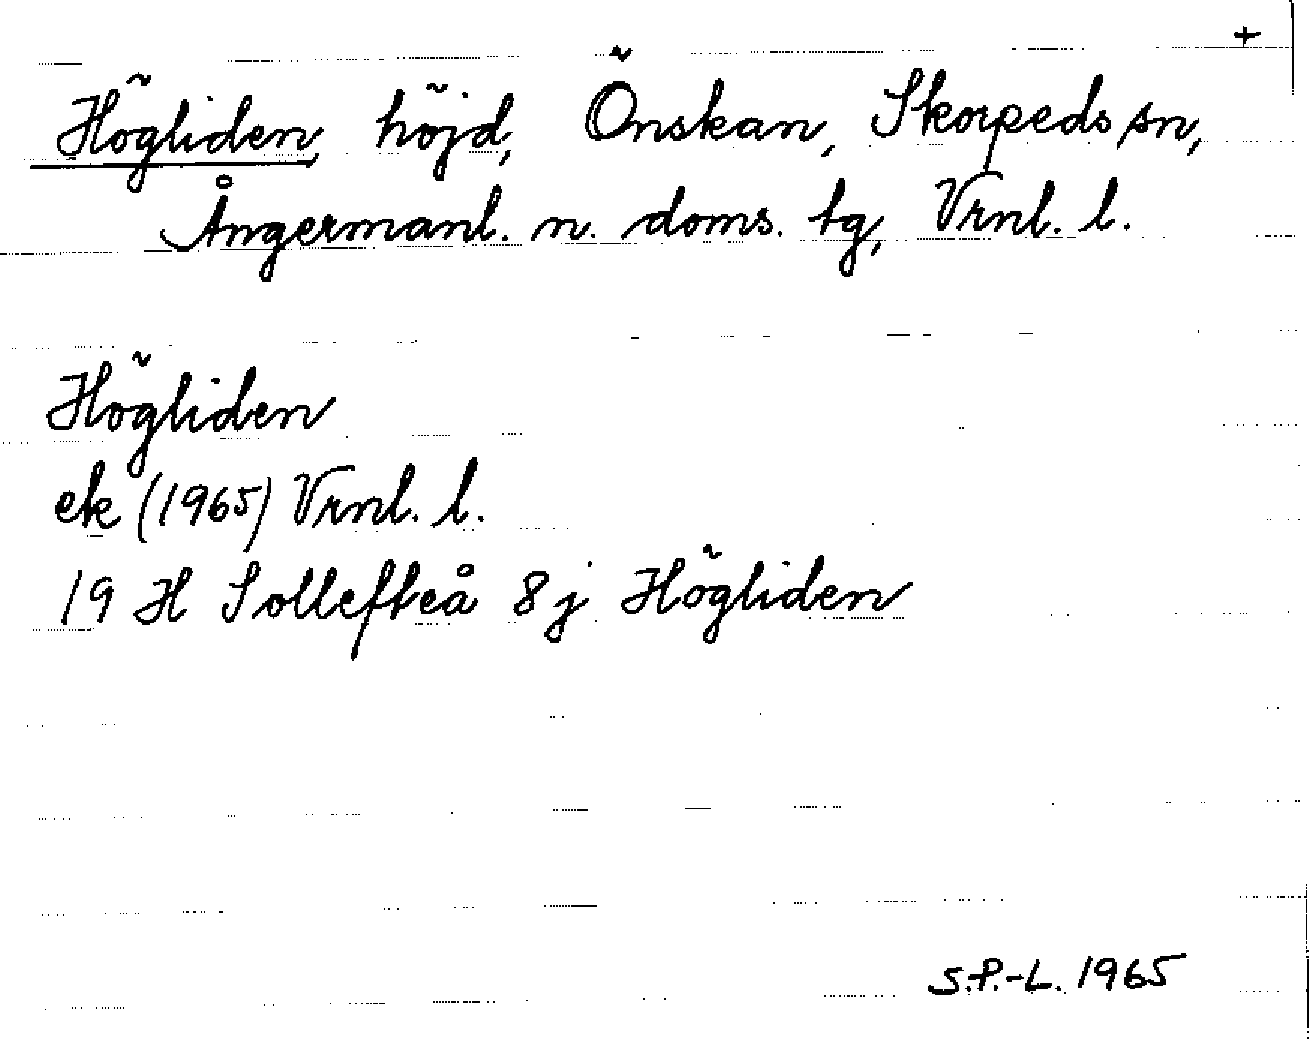 +
Högliden, höjd, Önskan, Skorpeds sn,
Ångermanl. n. doms. tg, Vrnl. l.
Högliden
ek (1965) Vrnl. l.
19 H Sollefteå 8j Högliden
S.P.-L. 1965